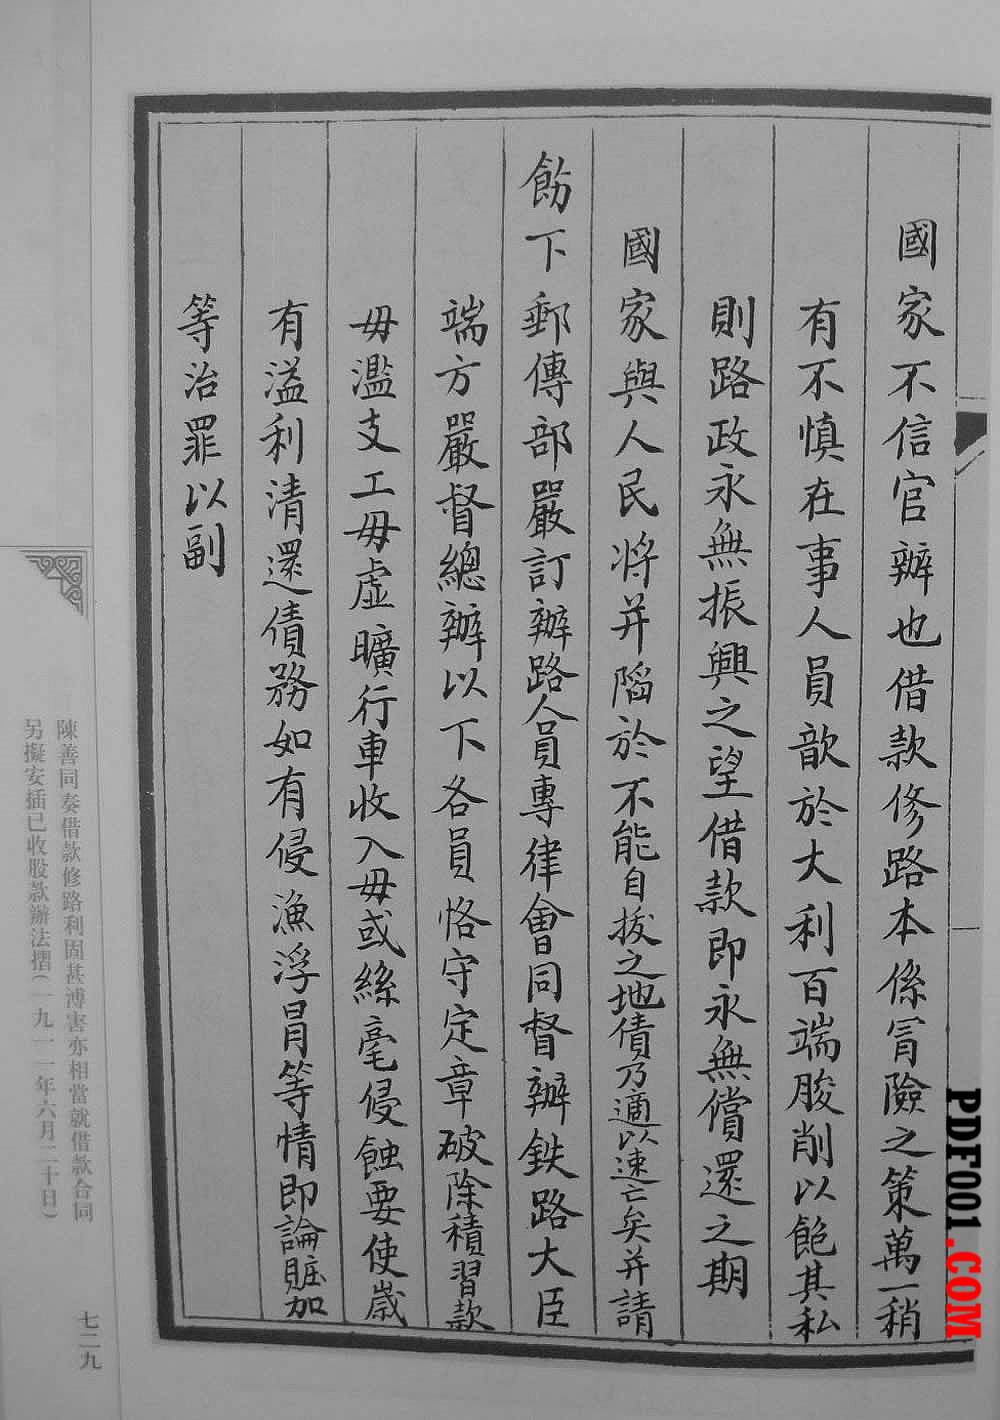 國家不信官辦也借款修路本係冒險之策萬一稍
有不慎在事人員歆於大利百端朘削以飽其私
則路政永無振興之望借款即永無償還之期
國家與人民將并陷於不能自拔之地債乃適以速亡矣并請
飭下郵傳部嚴訂辦路人員專律會同督辦鉄路大臣
端方嚴督總辦以下各員恪守定章破除積習款
毋濫支工毋虛曠行車收入毋或絲毫侵蝕要使歲
有溢利清還債務如有侵漁浮冒等情即論贓加
等治罪以副
陳善同奏借款修路利固甚溥害亦相當就借款合同
另擬安插已收股款辦法摺(一九一一年六月二十日)
七二九
PDF001.COM